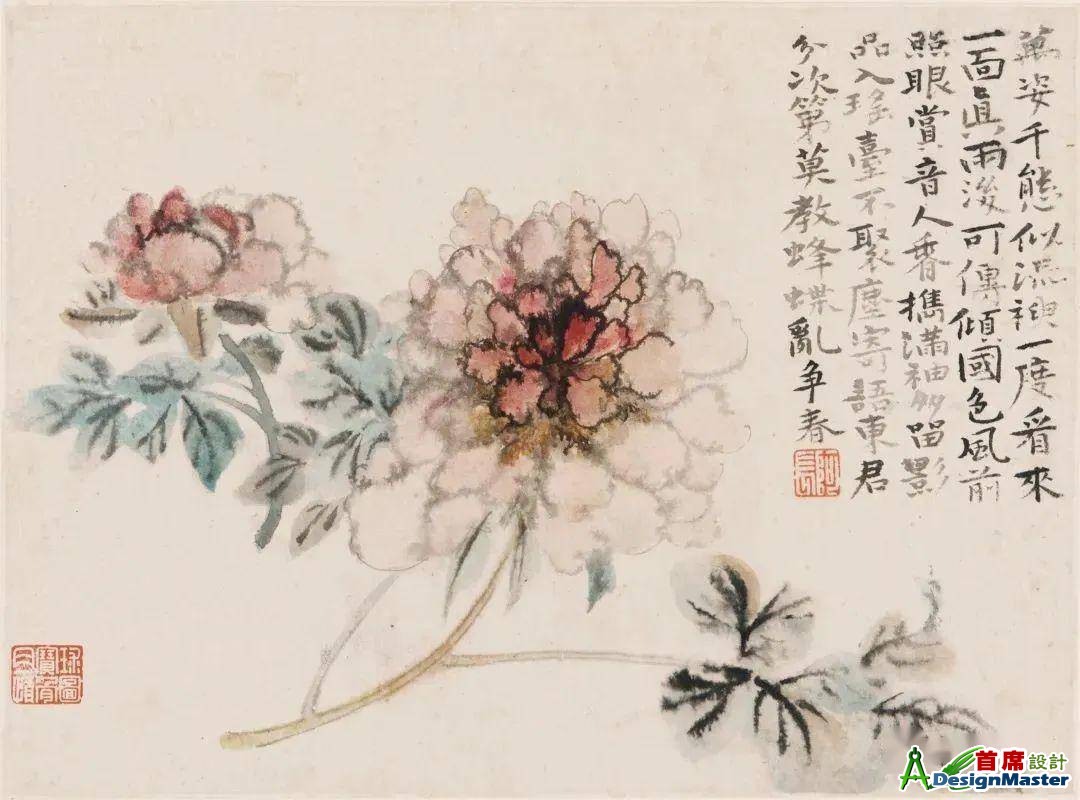 萬姿千態似流神一度看來
一面眞雨後可傳傾國色風前
照眼賞音人香攜滿袖多留影
品入瑤臺不聚塵寄語東君
分次第莫教蜂蝶亂争春
阿長
首席設計
DesignMaster